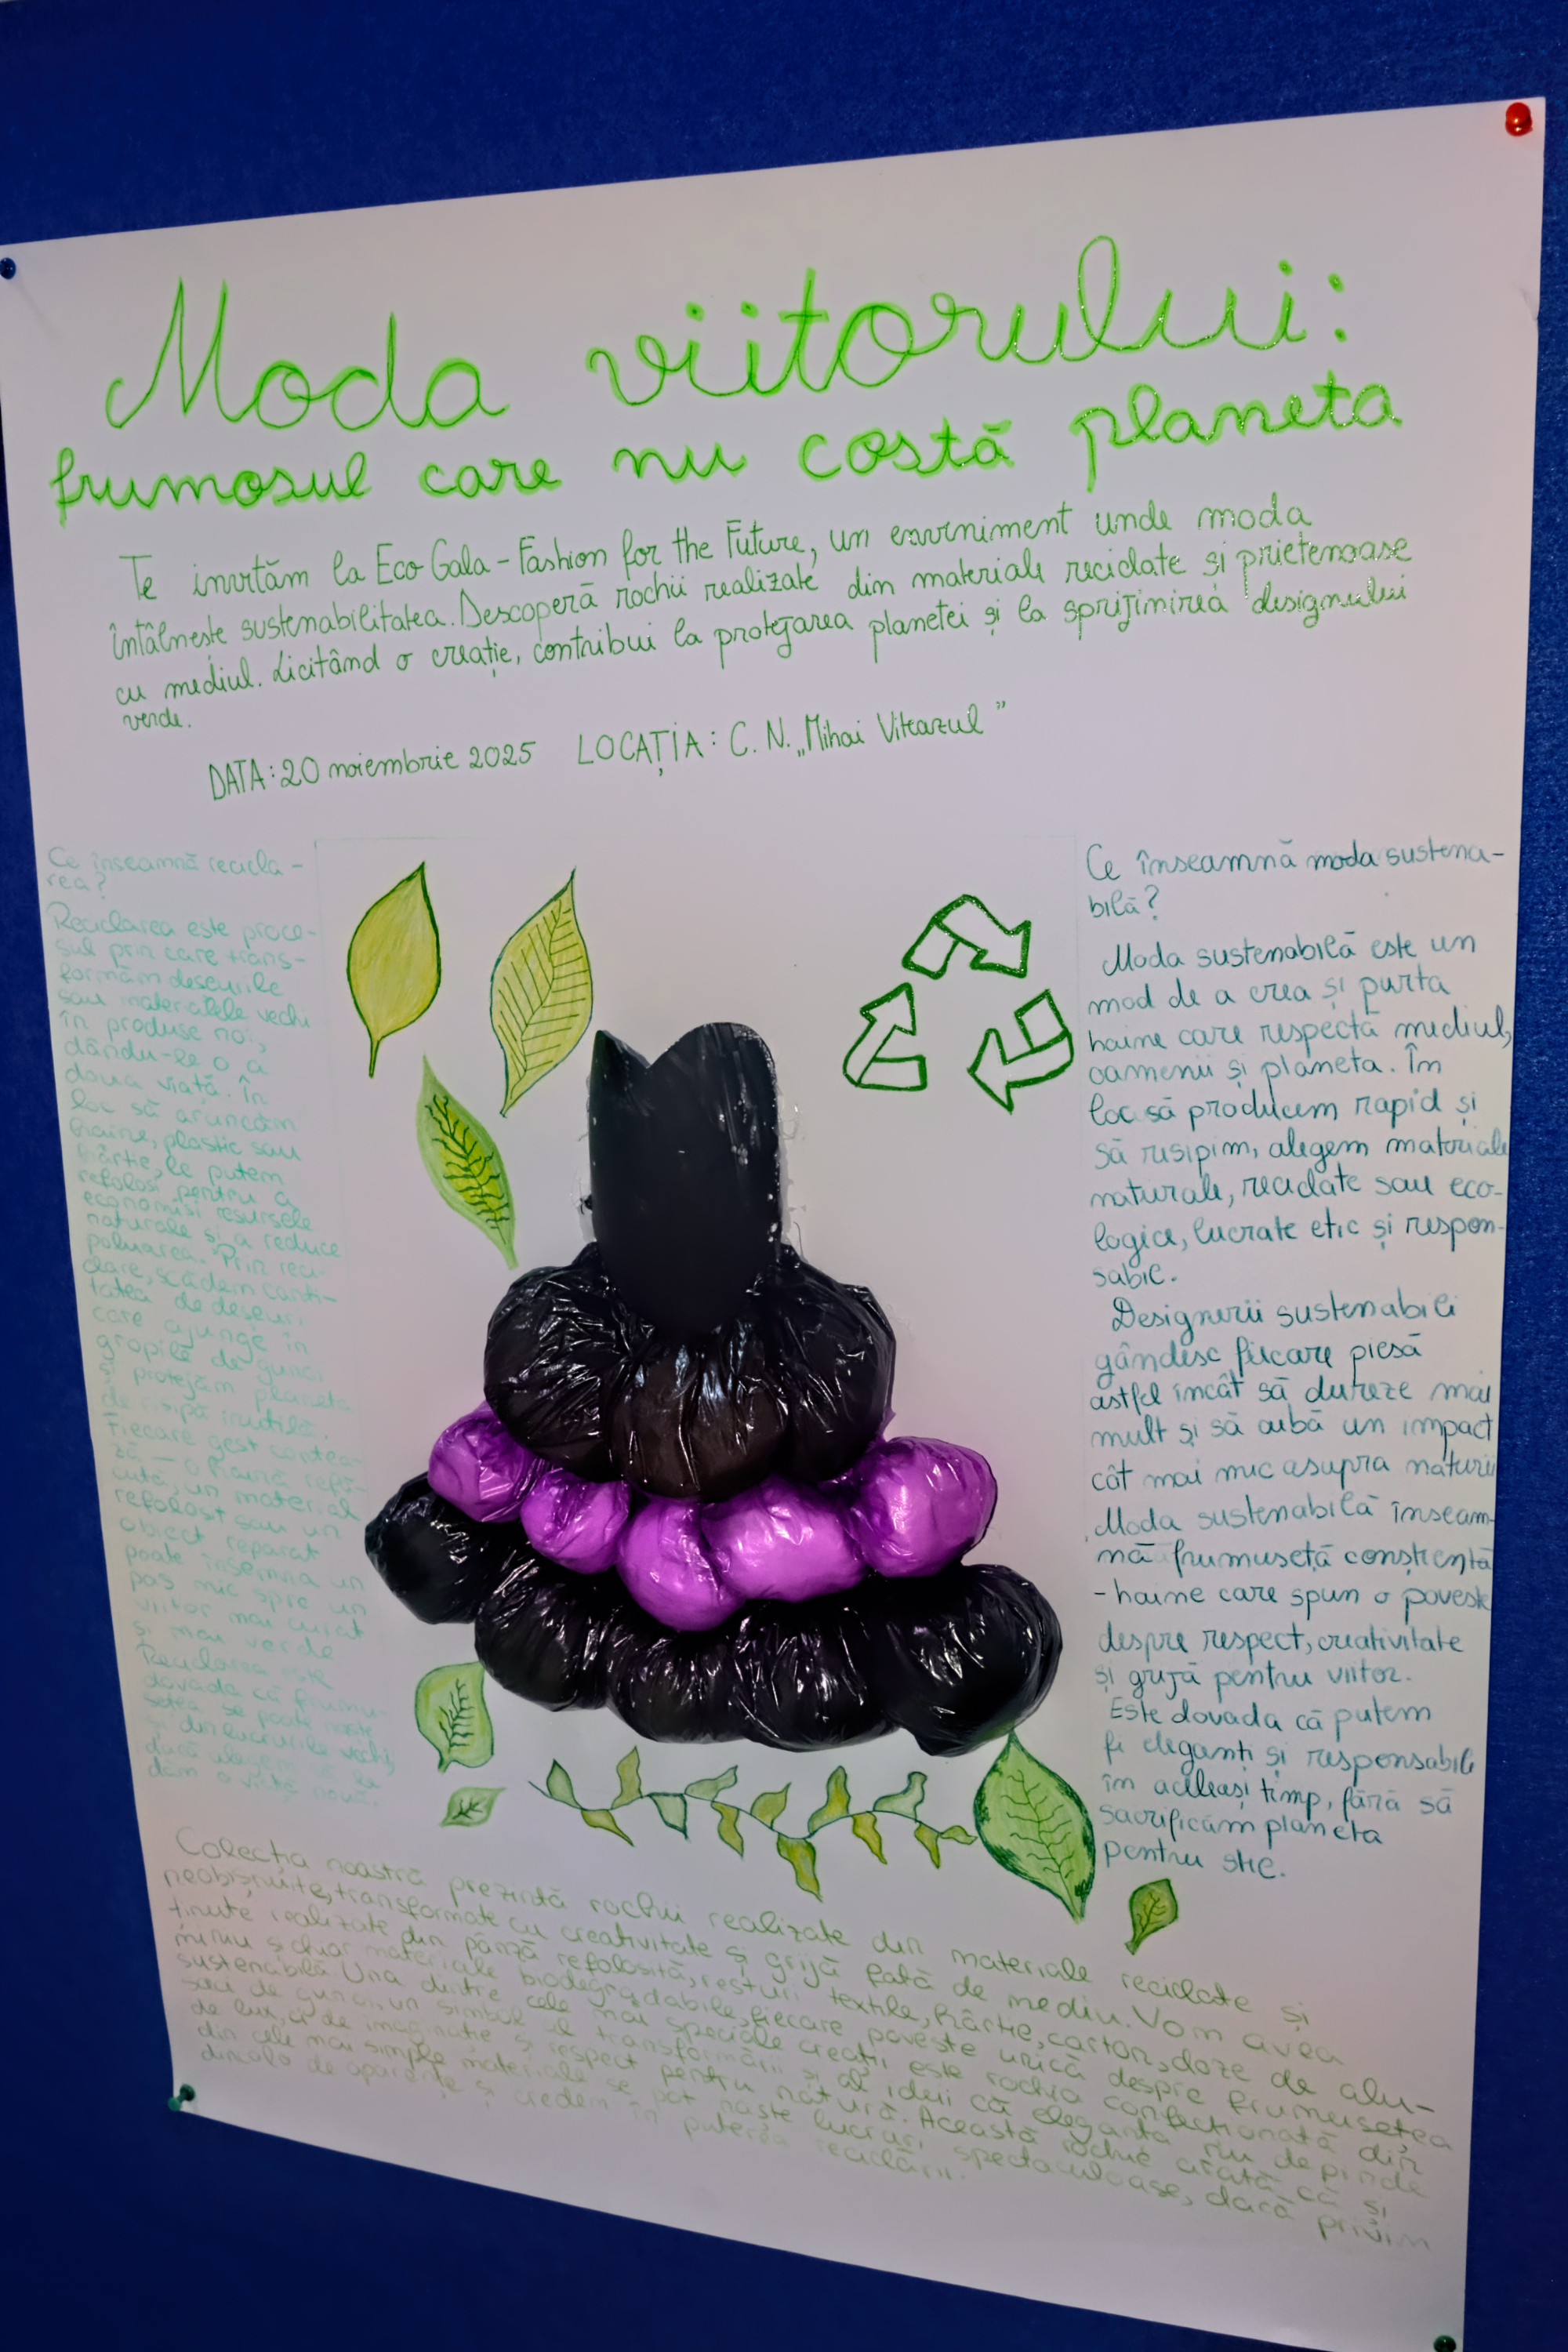 Moda viitorului:
frumosul care nu costă planeta
Te invităm la Eco Gala - Fashion for the Future, un eveniment unde moda
întâlnește sustenabilitatea. Descoperă rochii realizate din materiale reciclate și prietenoase
cu mediul. Licitând o creație, contribui la protejarea planetei și la sprijinirea designului
verde.
DATA: 20 noiembrie 2025 LOCAȚIA: C. N. „Mihai Viteazul”
Ce înseamnă recicla-
rea?
Reciclarea este proce-
sul prin care trans-
formăm deseurile
sau materialele vechi
în produse noi,
dându-le o a
doua viață. În
loc să aruncăm
haine, plastic sau
hârtie, le putem
refolosi pentru a
economisi resursele
naturale și a reduce
poluarea. Prin reci-
clare, scădem canti-
tatea de deșeuri
care ajunge în
gropile de gunoi
și protejăm planeta
de risipă inutilă.
Fiecare gest contea-
ză — o haină refă-
cută, un material
refolosit sau un
obiect reparat
poate însemna un
pas mic spre un
viitor mai curat
și mai verde
Reciclarea este
dovada că frumu-
sețea se poate naște
și din lucrurile vechi,
dacă alegem să le
dăm o viață nouă.
Ce înseamnă moda sustena-
bilă?
Moda sustenabilă este un
mod de a crea și purta
haine care respectă mediul,
oamenii și planeta. În
loc să producem rapid și
să risipim, alegem materiale
naturale, reciclate sau eco-
logice, lucrate etic și respon-
sabil.
Designerii sustenabili
gândesc fiecare piesă
astfel încât să dureze mai
mult și să aibă un impact
cât mai mic asupra naturii
Moda sustenabilă înseam-
nă frumusețe conștientă
- haine care spun o poveste
despre respect, creativitate
și grijă pentru viitor.
Este dovada că putem
fi eleganți și responsabili
în același timp, fără să
sacrificăm planeta
pentru stil.
Colecția noastră prezintă rochii realizate din materiale reciclate și
neobișnuite, transformate cu creativitate și grijă față de mediu. Vom avea
ținute realizate din pânză refolosită, resturi textile, hârtie, carton, doze de alu-
miniu și chiar materiale biodegradabile, fiecare poveste unică despre frumusețea
sustenabilă. Una dintre cele mai speciale creații este rochia confecționată din
saci de gunoi, un simbol al transformării și al ideii că eleganța nu depinde
de lux, ci de imaginație și respect pentru natură. Această rochie arată că și
din cele mai simple materiale se pot naște lucruri spectaculoase, dacă privim
dincolo de aparențe și credem în puterea reciclării.